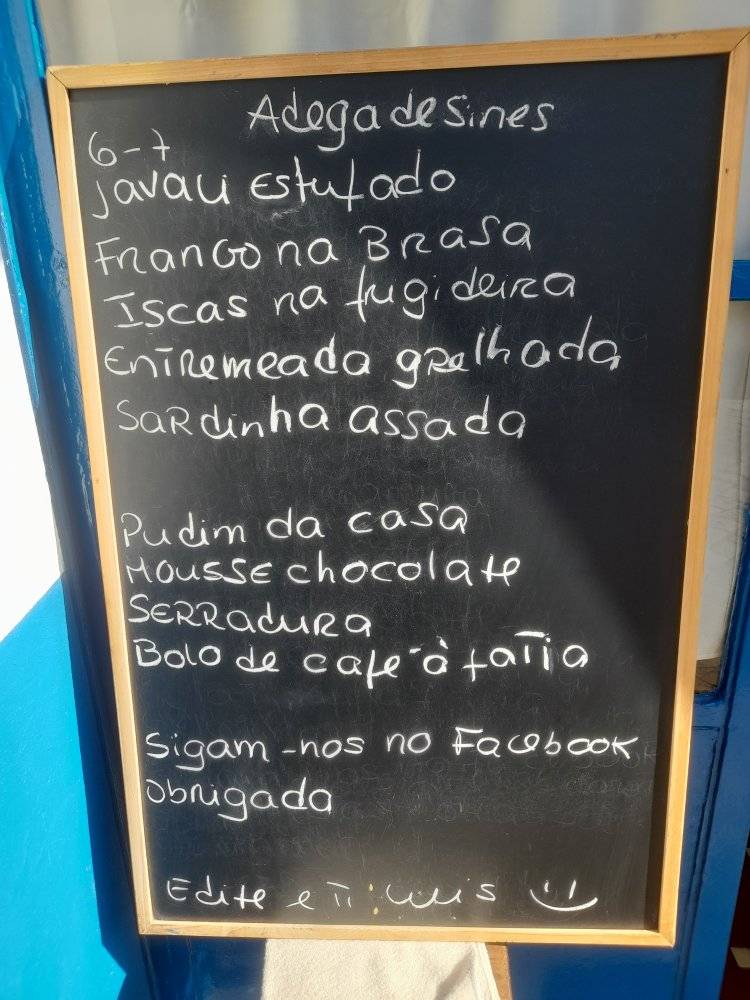 Adega de Sines
6-7
Javali Estufado
Frango na Brasa
Iscas na frigideira
Entremeada grelhada
Sardinha assada
Pudim da casa
Mousse chocolate
Serradura
Bolo de café à fatia
Sigam-nos no Facebook
obrigada
Edite e Ti Luis